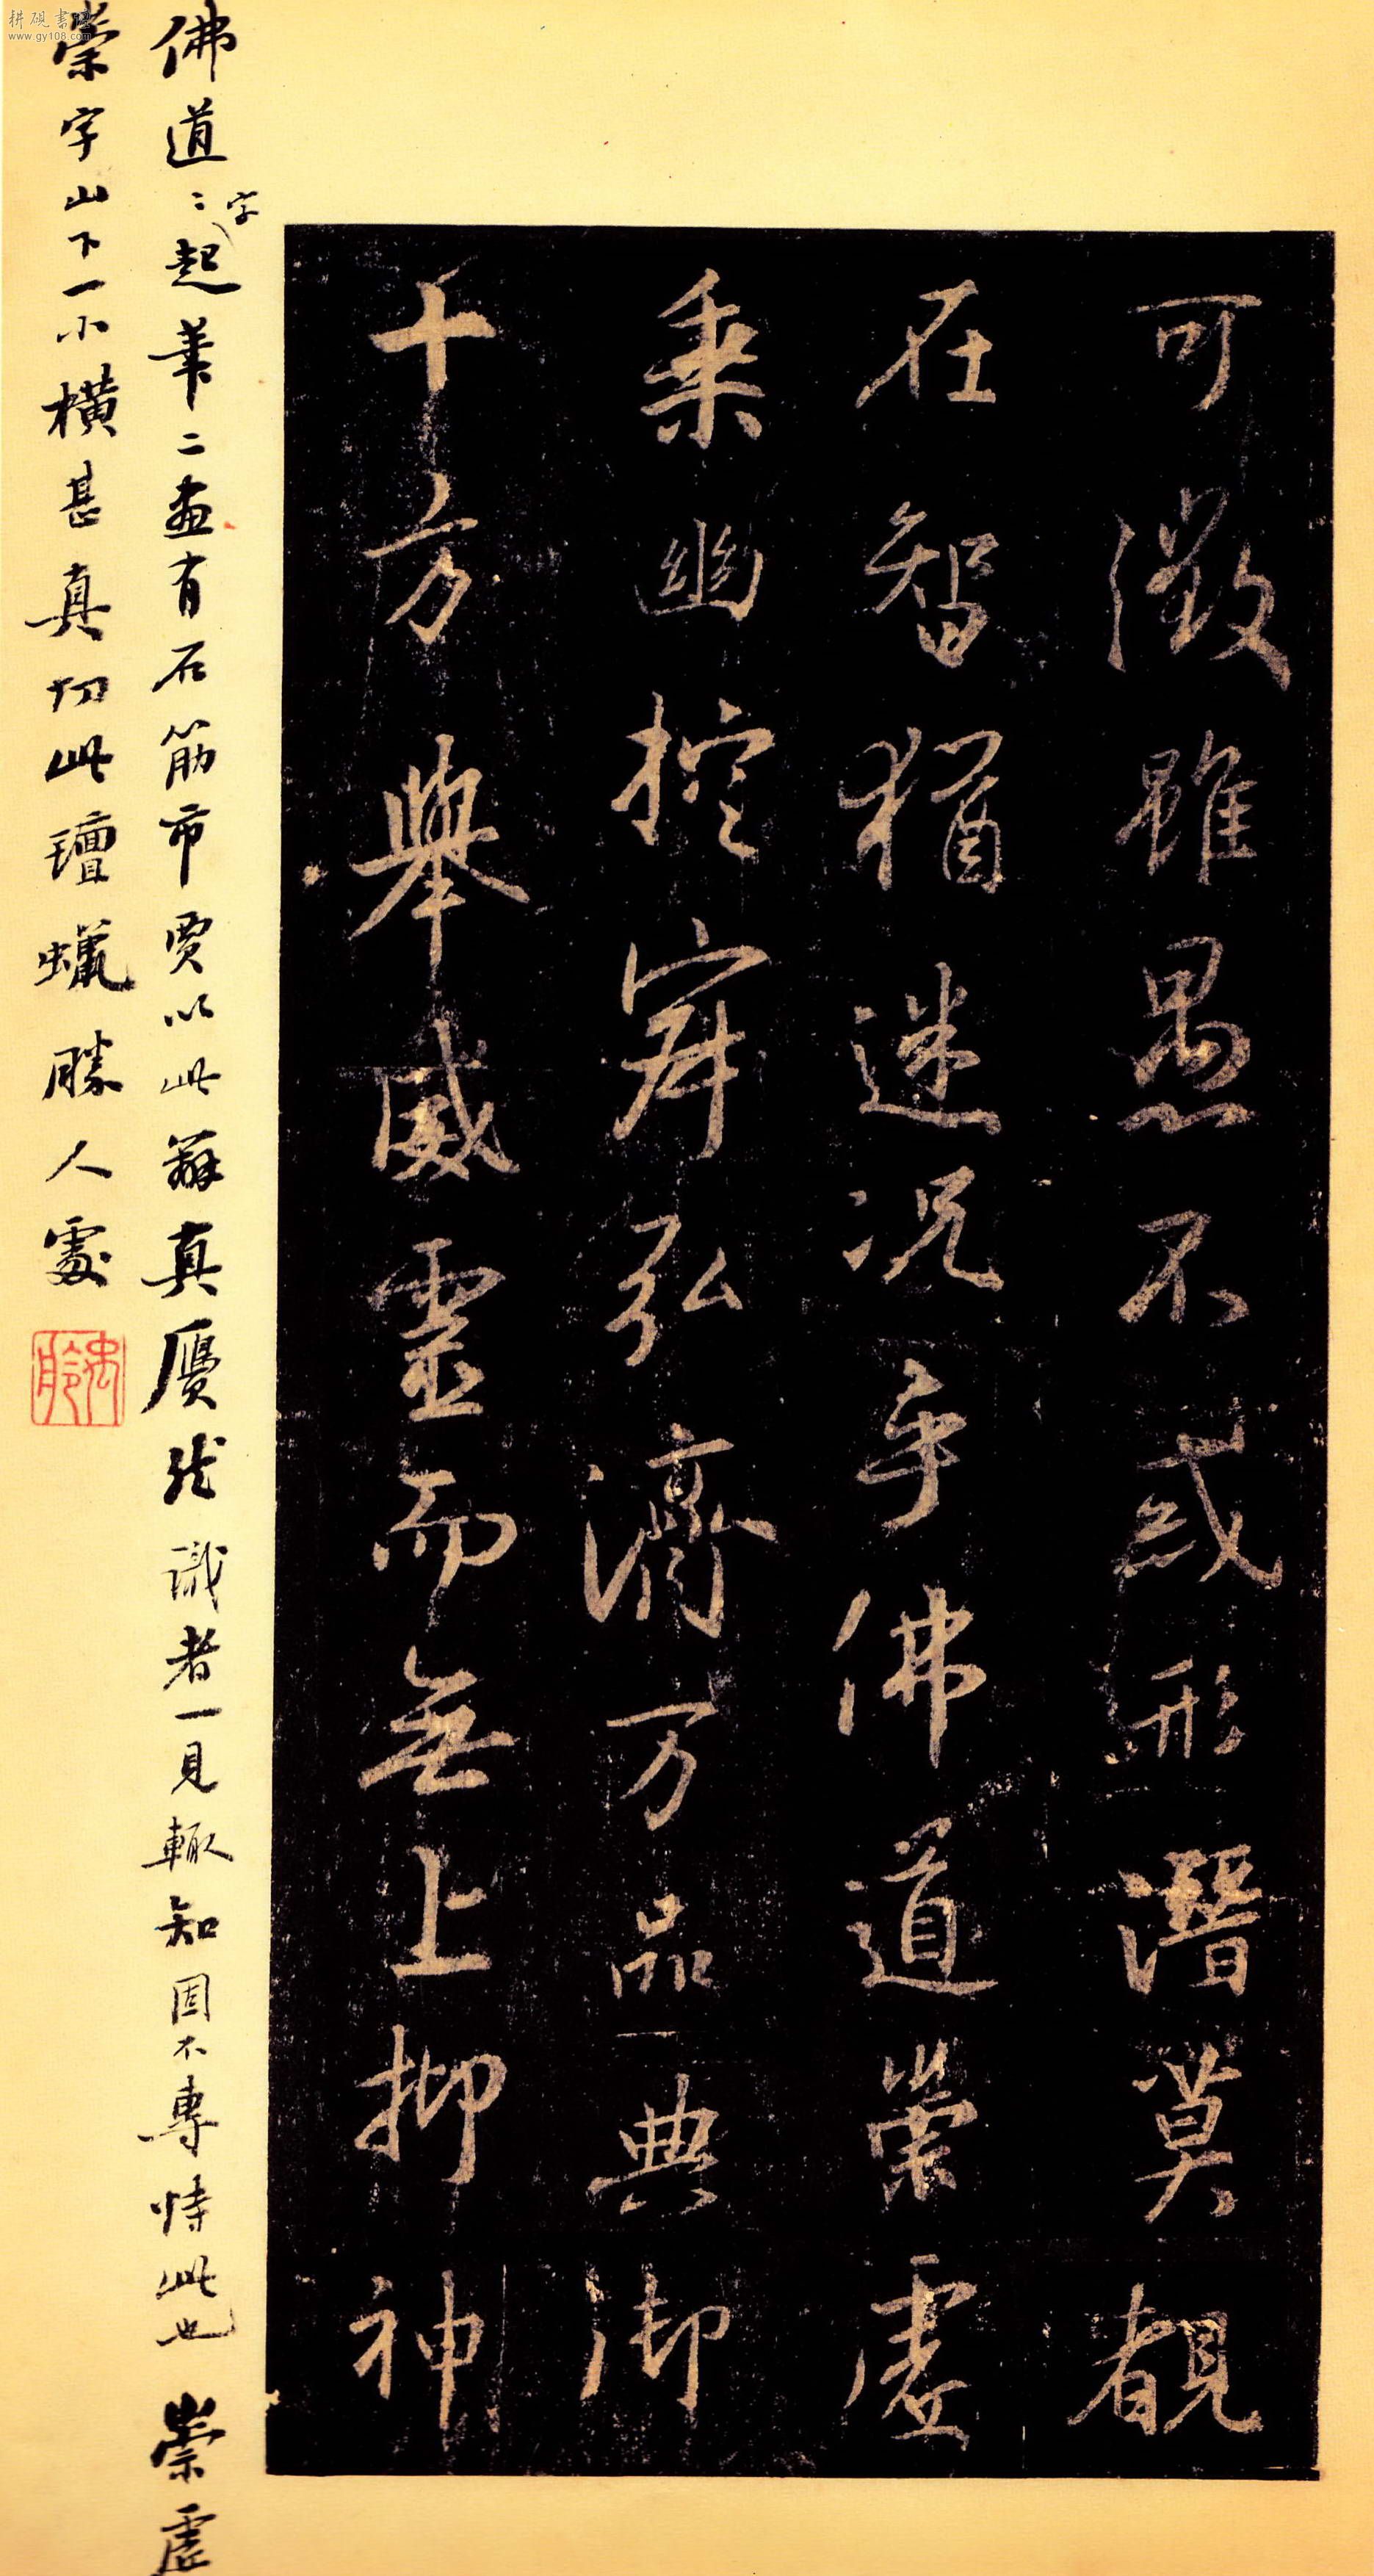 可徵雖愚不惑形潛莫覩
在智猶迷況乎佛道崇虛
乘幽控寂弘濟万品典御
十方舉威靈而無上抑神
佛道二字起筆二畫有石筋市賈以此辨真贋然識者一見輒知固不專恃此也崇虛
崇字山下一小橫甚真切此氊蠟勝人處
www.gy108.com